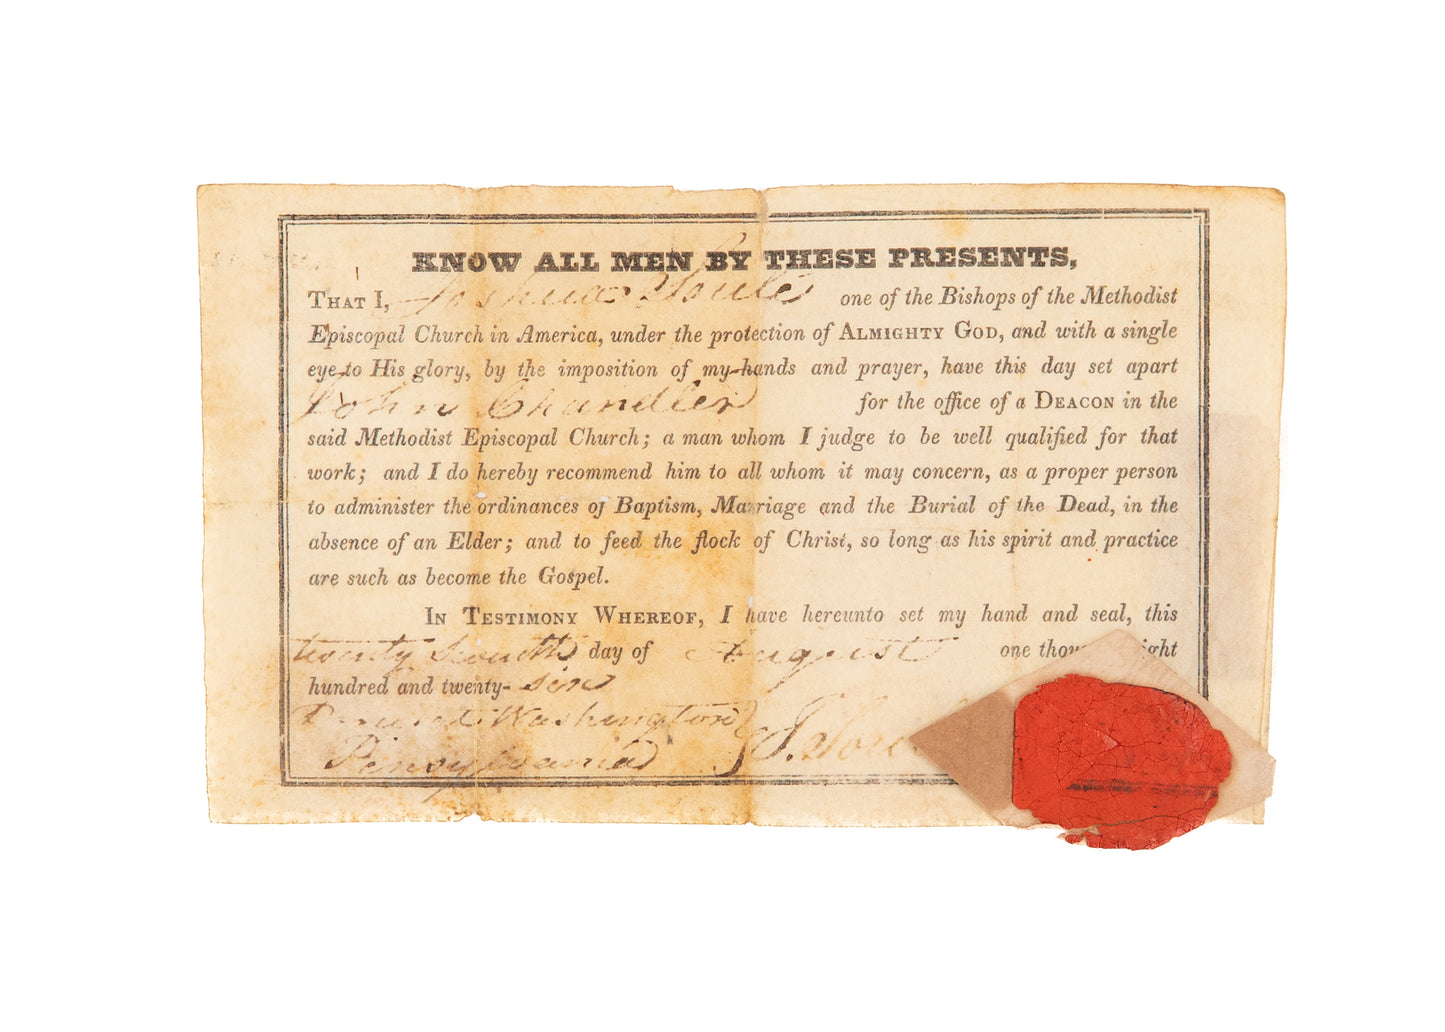 KNOW ALL MEN BY THESE PRESENTS,
THAT I, Joshua Soule one of the Bishops of the Methodist
Episcopal Church in America, under the protection of ALMIGHTY GOD, and with a single
eye to His glory, by the imposition of my hands and prayer, have this day set apart
John Chandler for the office of a DEACON in the
said Methodist Episcopal Church; a man whom I judge to be well qualified for that
work; and I do hereby recommend him to all whom it may concern, as a proper person
to administer the ordinances of Baptism, Marriage and the Burial of the Dead, in the
absence of an Elder; and to feed the flock of Christ, so long as his spirit and practice
are such as become the Gospel.
IN TESTIMONY WHEREOF, I have hereunto set my hand and seal, this
twenty day of August one ight
hundred and twenty- six
Washington
Pensylvania J. Sou